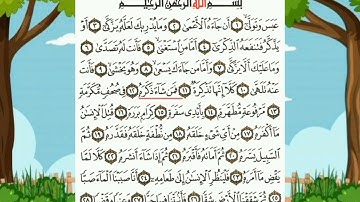 بِسْمِ اللَّهِ الرَّحْمَٰنِ الرَّحِيمِ
عَبَسَ وَتَوَلَّىٰ ١ أَن جَاءَهُ الْأَعْمَىٰ ٢ وَمَا يُدْرِيكَ لَعَلَّهُ يَزَّكَّىٰ ٣ أَوْ
يَذَّكَّرُ فَتَنفَعَهُ الذِّكْرَىٰ ٤ أَمَّا مَنِ اسْتَغْنَىٰ ٥ فَأَنتَ لَهُ تَصَدَّىٰ ٦
وَمَا عَلَيْكَ أَلَّا يَزَّكَّىٰ ٧ وَأَمَّا مَن جَاءَكَ يَسْعَىٰ ٨ وَهُوَ يَخْشَىٰ ٩ فَأَنتَ
عَنْهُ تَلَهَّىٰ ١٠ كَلَّا إِنَّهَا تَذْكِرَةٌ ١١ فَمَن شَاءَ ذَكَرَهُ ١٢ فِي صُحُفٍ مُّكَرَّمَةٍ ١٣
مَّرْفُوعَةٍ مُّطَهَّرَةٍ ١٤ بِأَيْدِي سَفَرَةٍ ١٥ كِرَامٍ بَرَرَةٍ ١٦ قُتِلَ الْإِنسَانُ
مَا أَكْفَرَهُ ١٧ مِنْ أَيِّ شَيْءٍ خَلَقَهُ ١٨ مِن نُّطْفَةٍ خَلَقَهُ فَقَدَّرَهُ ١٩ ثُمَّ
السَّبِيلَ يَسَّرَهُ ٢٠ ثُمَّ أَمَاتَهُ فَأَقْبَرَهُ ٢١ ثُمَّ إِذَا شَاءَ أَنشَرَهُ ٢٢ كَلَّا لَمَّا
يَقْضِ مَا أَمَرَهُ ٢٣ فَلْيَنظُرِ الْإِنسَانُ إِلَىٰ طَعَامِهِ ٢٤ أَنَّا صَبَبْنَا الْمَاءَ صَبًّا
٢٥ ثُمَّ شَقَقْنَا الْأَرْضَ شَقًّا ٢٦ فَأَنبَتْنَا فِيهَا حَبًّا ٢٧